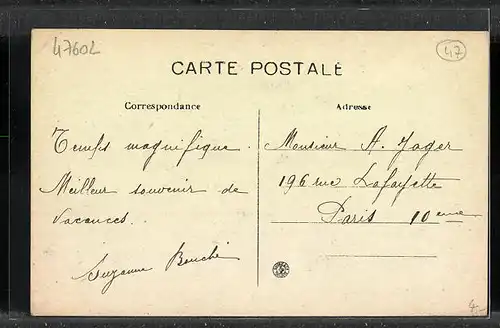 47602
47
CARTE POSTALE
Correspondance
Temps magnifique.
Meilleur souvenir de
vacances.
Suzanne
Adresse
Monsieur A. Jager
196 rue Lafayette
Paris 10eme